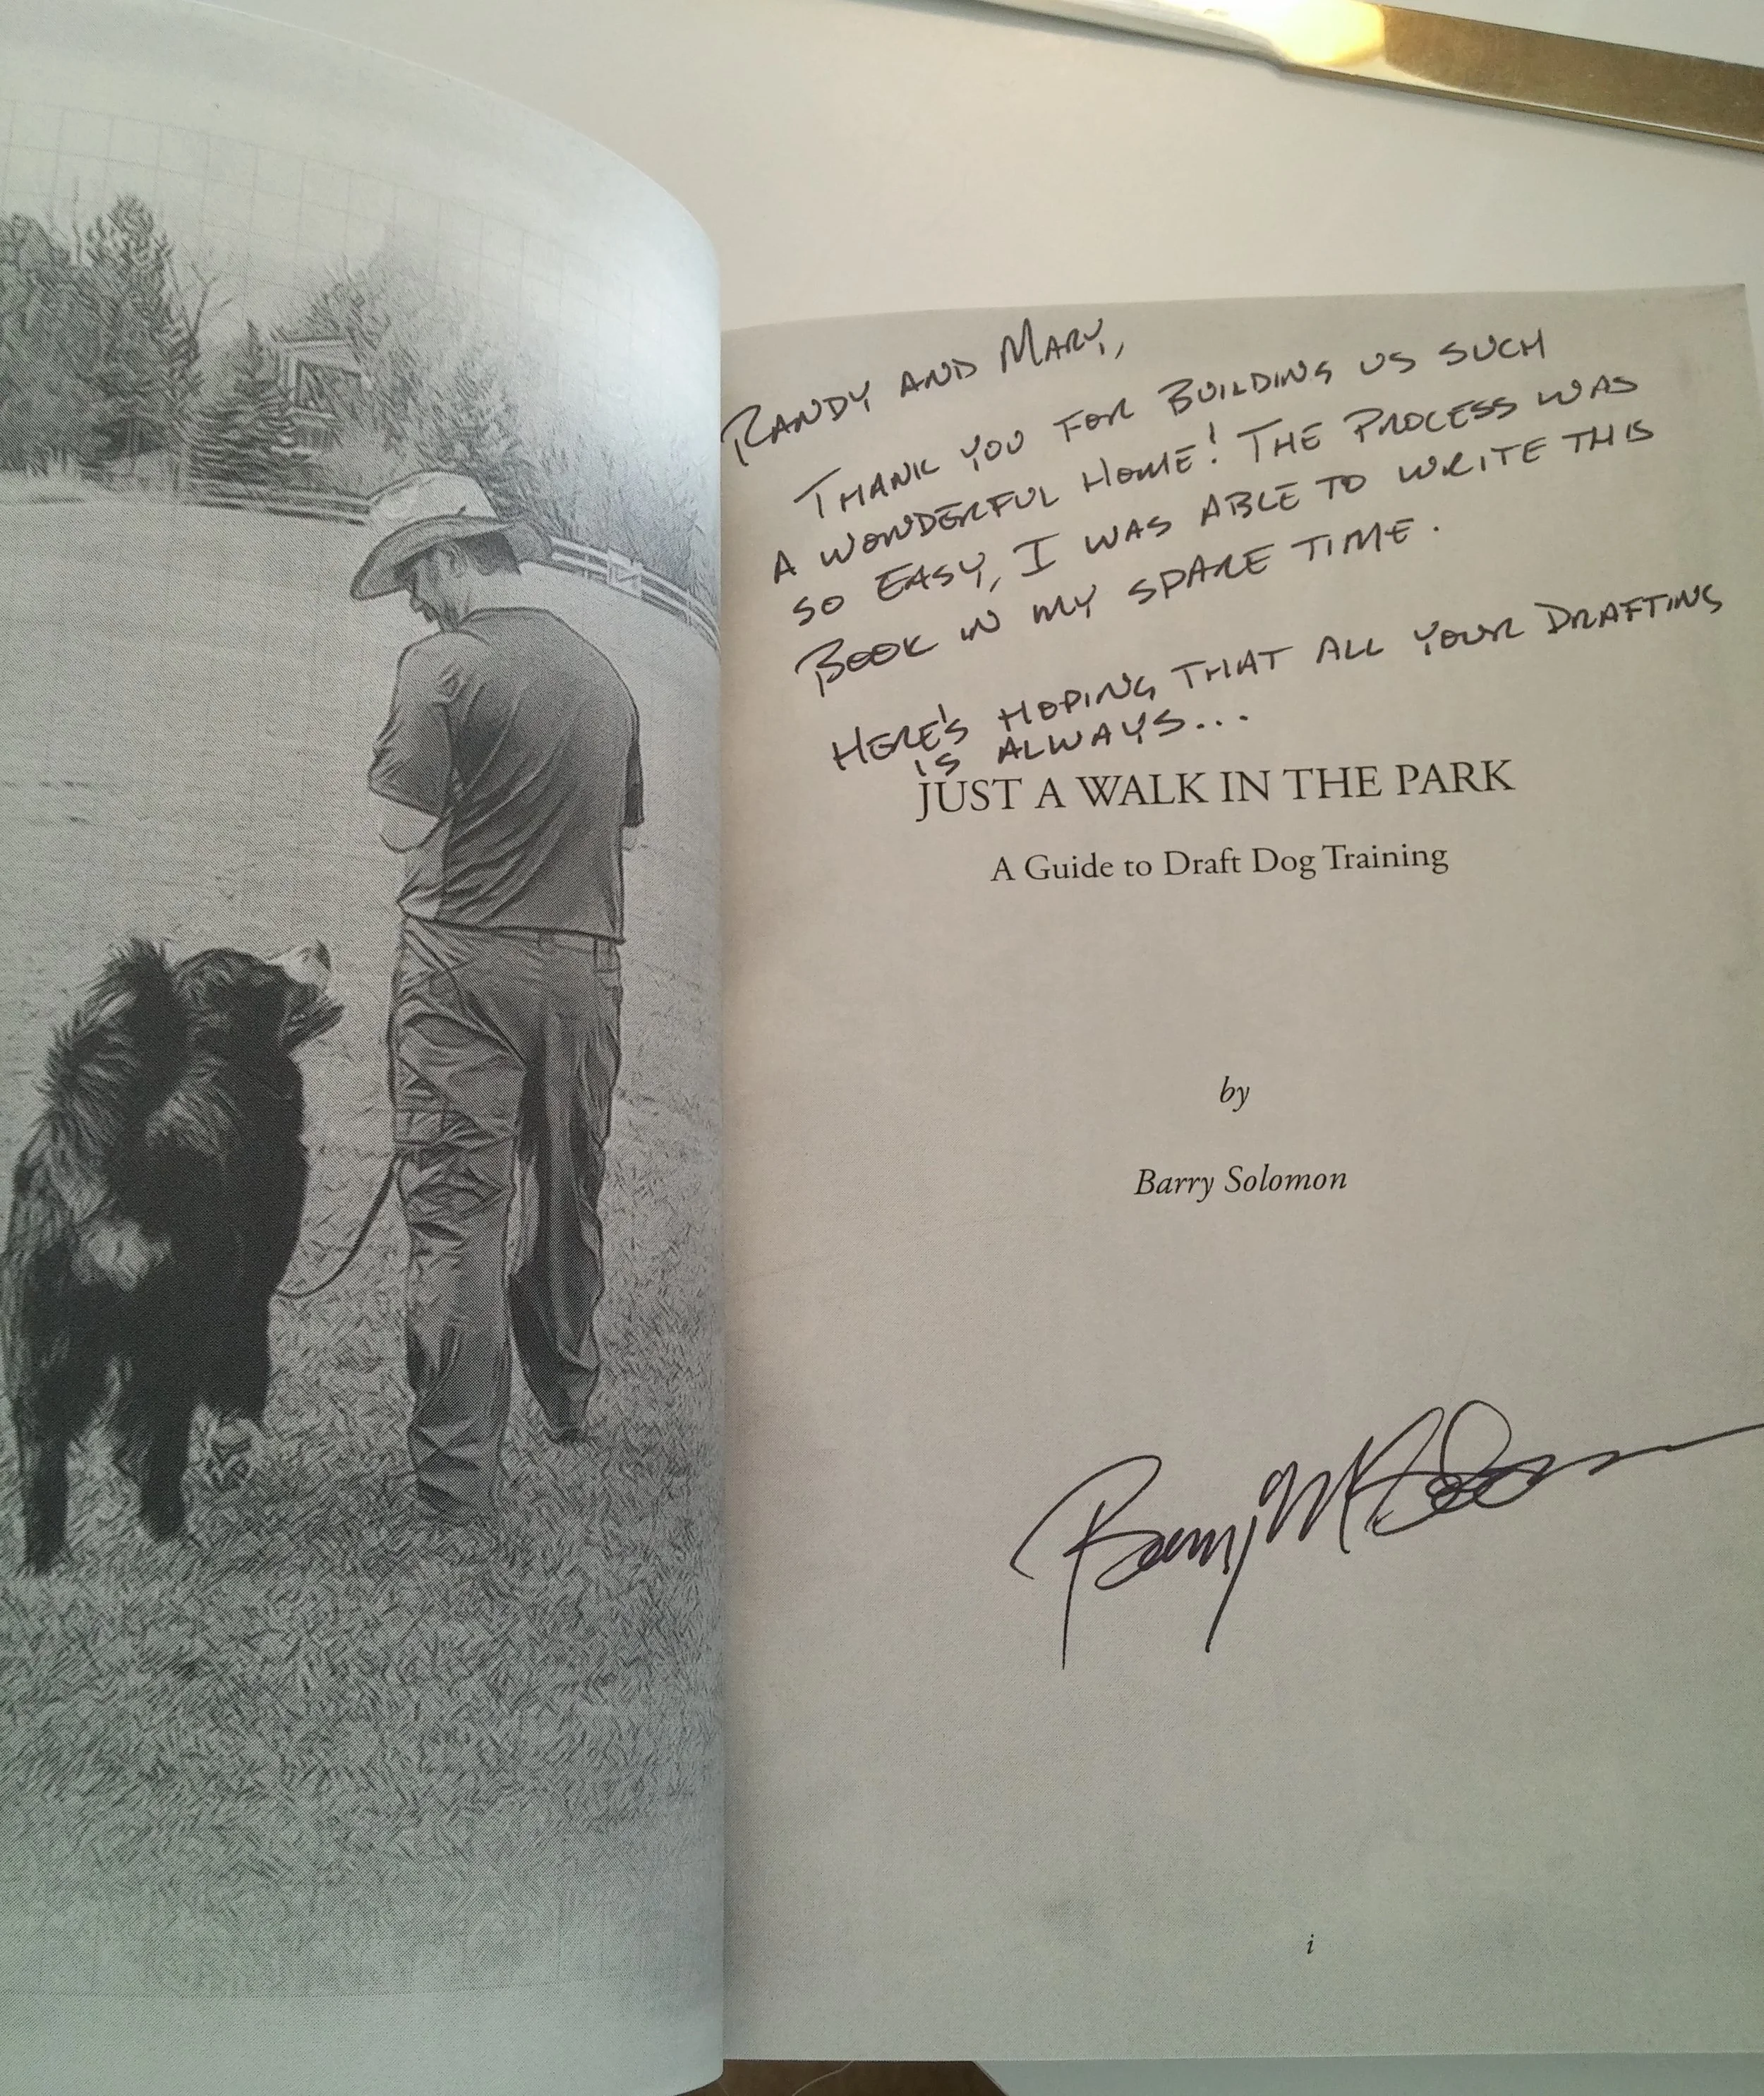 RANDY AND MARY,
THANK YOU FOR BUILDING US SUCH
A WONDERFUL HOME! THE PROCESS WAS
SO EASY, I WAS ABLE TO WRITE THIS
BOOK IN MY SPARE TIME.
HERE'S HOPING THAT ALL YOUR DRAFTING
IS ALWAYS...
JUST A WALK IN THE PARK
A Guide to Draft Dog Training
by
Barry Solomon
Barry
i